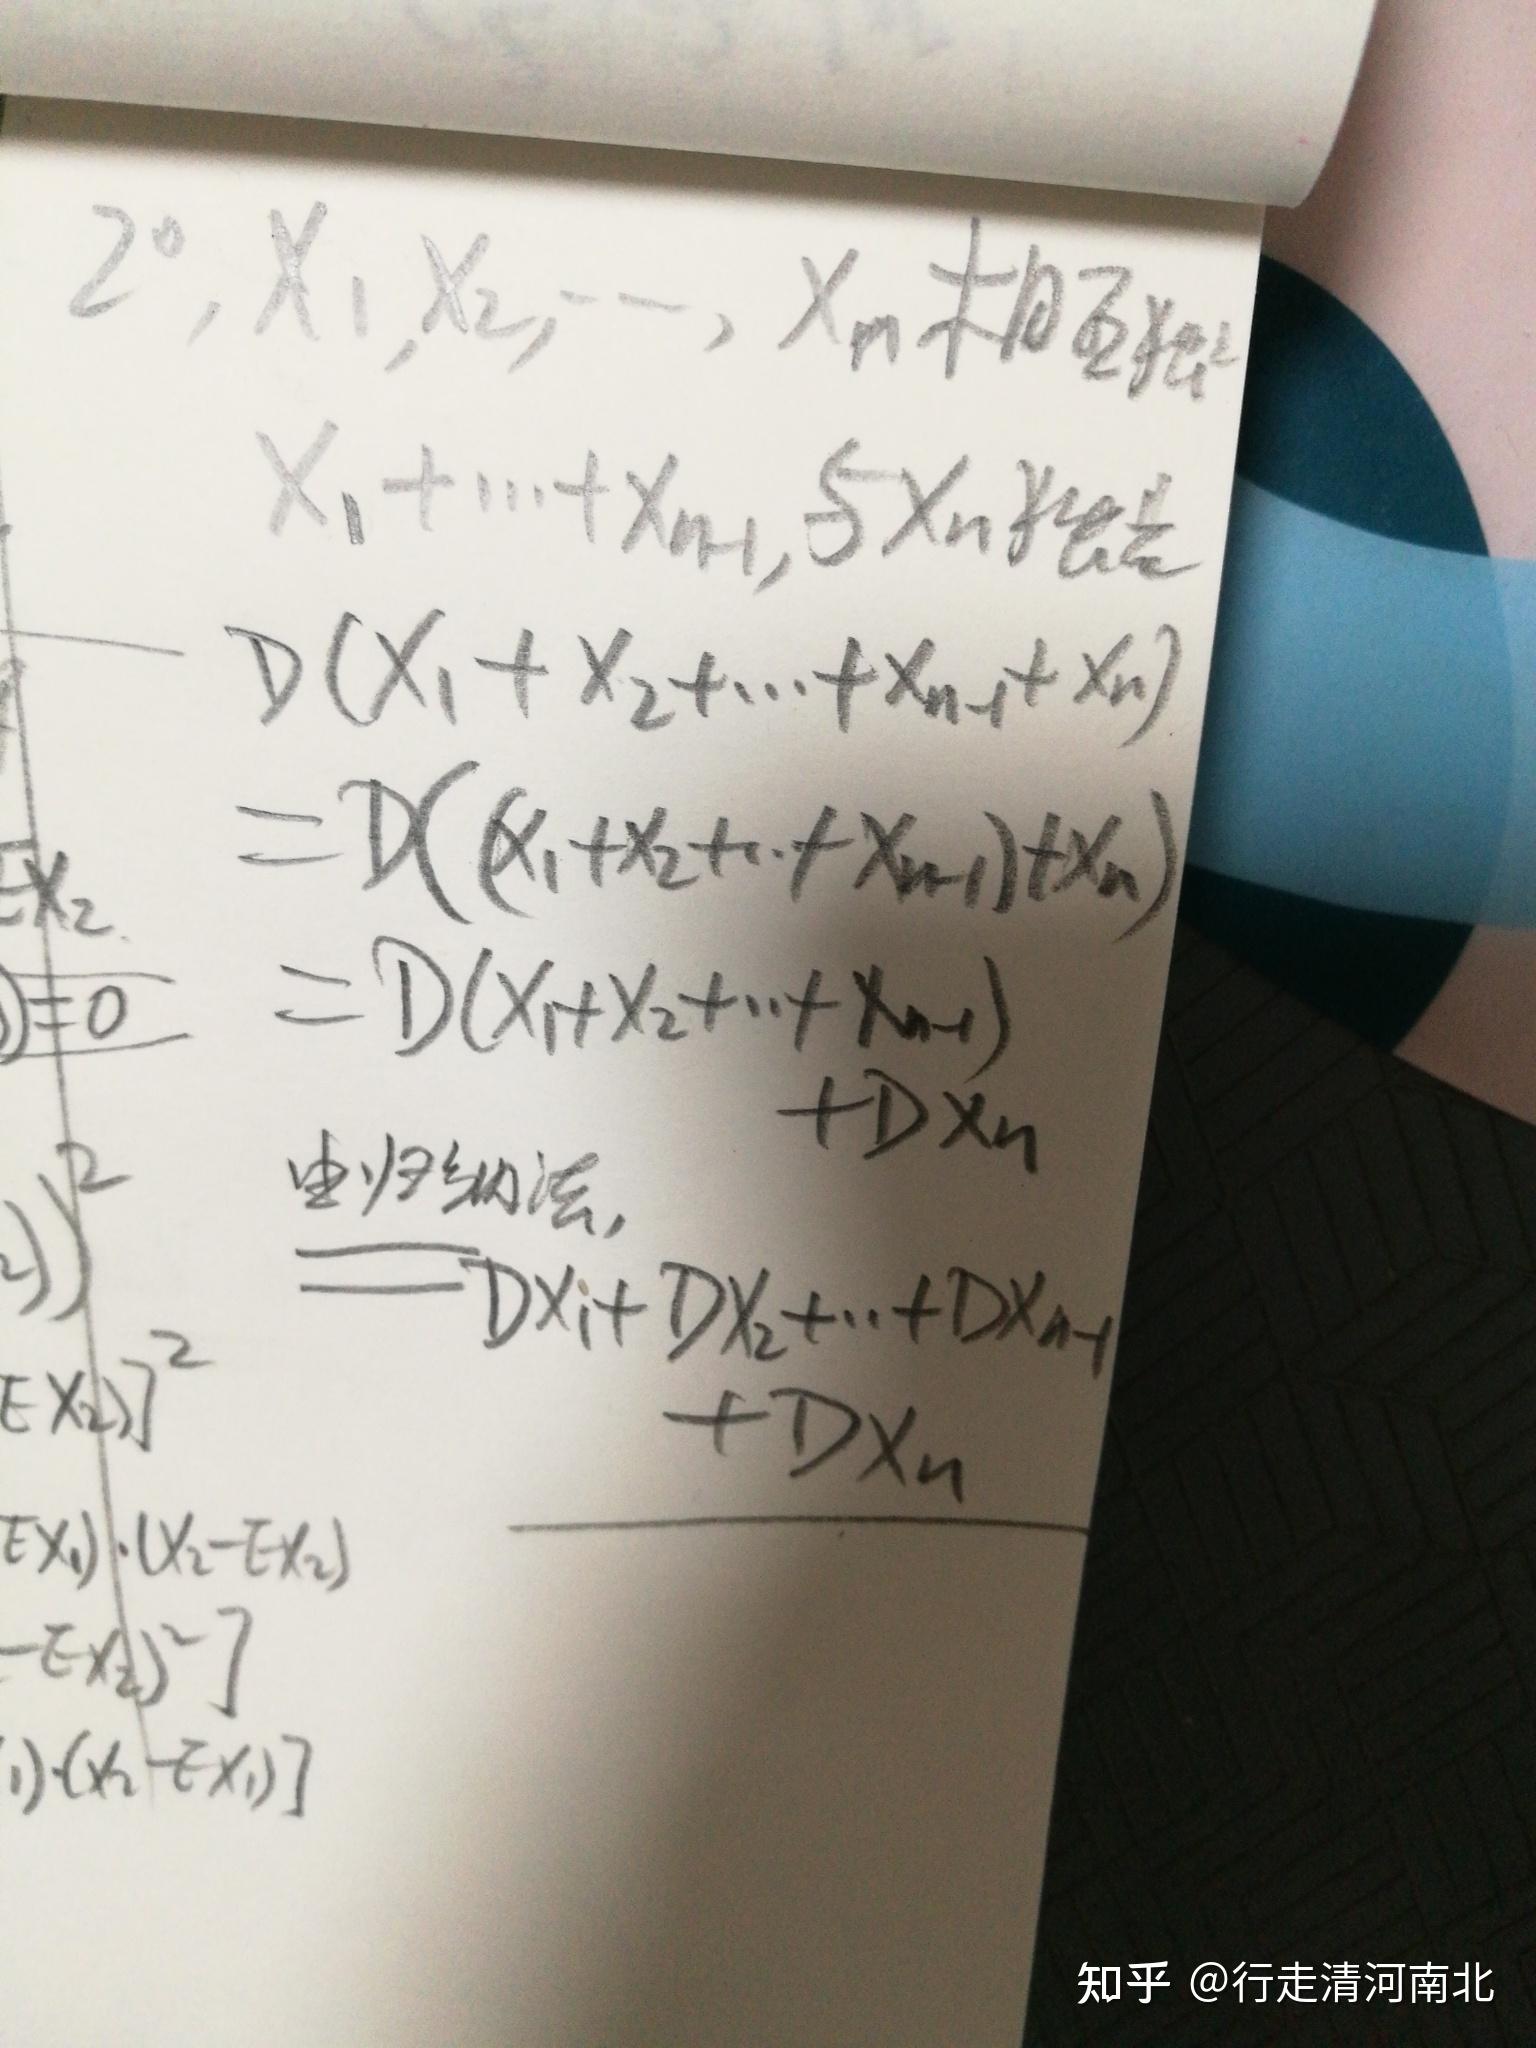 2°, X₁, X₂, ..., Xₘ 相互独立
X₁+...+Xₙ₋₁, 与Xₙ独立
D(X₁+X₂+...+Xₙ₋₁+Xₙ)
=D((X₁+X₂+...+Xₙ₋₁)+Xₙ)
=D(X₁+X₂+...+Xₙ₋₁)
+DXₙ
由归纳法,
=DX₁+DX₂+...+DXₙ₋₁
+DXₙ
EX₂.
)=0
))²
EX₂)]²
EX₁)·(X₂-EX₂)
-EX₂)²]
₁)·(X₂-EX₁)]
知乎 @行走清河南北